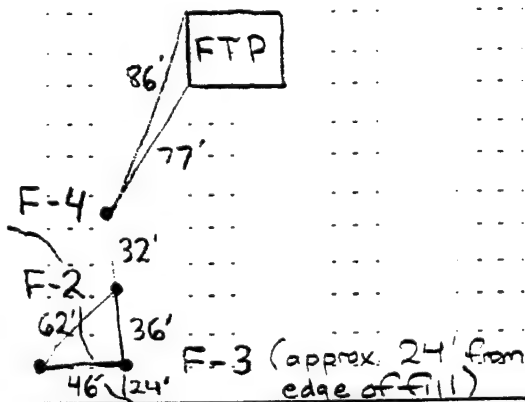 FTP
86'
77'
F-4
32'
F-2
62'
36'
F-3 (approx. 24' from
46' 24'
edge of fill)